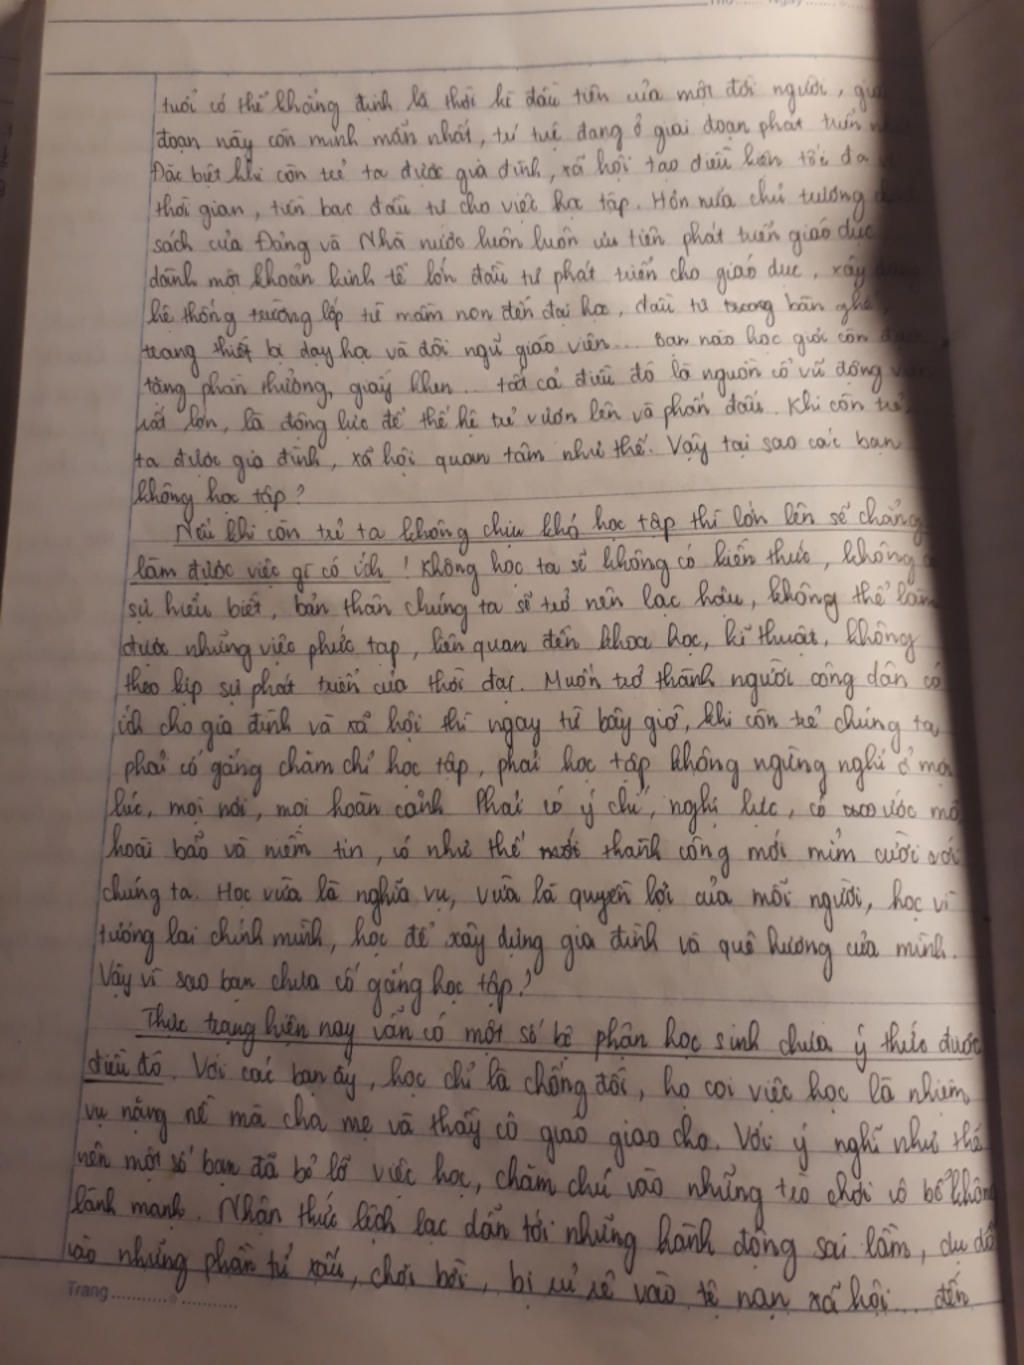 tuổi có thể khẳng định là thời kì đầu tiên của một đời người, giai
đoạn này còn minh mẫn nhất, trí tuệ đang ở giai đoạn phát triển
Đặc biệt khi còn trẻ ta được gia đình, xã hội tạo điều kiện tối đa
thời gian, tiền bạc đầu tư cho việc học tập. Hơn nữa chủ trương
sách của Đảng và Nhà nước luôn luôn ưu tiên phát triển giáo dục
dành một khoản kinh tế lớn đầu tư phát triển cho giáo dục, xây dựng
hệ thống trường lớp từ mầm non đến đại học, đầu tư trong bàn ghế,
trang thiết bị dạy học và đội ngũ giáo viên... Bạn nào học giỏi còn được
tặng phần thưởng, giấy khen... tất cả điều đó là nguồn cổ vũ động viên
rất lớn, là động lực để thế hệ trẻ vươn lên và phấn đấu. Khi còn trẻ,
ta được gia đình, xã hội quan tâm như thế. Vậy tại sao các bạn
không học tập?
Nếu khi còn trẻ ta không chịu khó học tập thì lớn lên sẽ chẳng
làm được việc gì có ích! Không học ta sẽ không có kiến thức, không
sự hiểu biết, bản thân chúng ta sẽ trở nên lạc hậu, không thể làm
được những việc phức tạp, liên quan đến khoa học, kĩ thuật, không
theo kịp sự phát triển của thời đại. Muốn trở thành người công dân có
ích cho gia đình và xã hội thì ngay từ bây giờ, khi còn trẻ chúng ta
phải cố gắng chăm chỉ học tập, phải học tập không ngừng nghỉ ở mọi
lúc, mọi nơi, mọi hoàn cảnh Phải có ý chí, nghị lực, có ước mơ
hoài bão và niềm tin, có như thế thành công mới mỉm cười với
chúng ta. Học vừa là nghĩa vụ, vừa là quyền lợi của mỗi người, học vì
tương lai chính mình, học để xây dựng gia đình và quê hương của mình.
Vậy vì sao bạn chưa cố gắng học tập?
Thực trạng hiện nay vẫn có một số bộ phận học sinh chưa ý thức được
điều đó. Với các bạn ấy, học chỉ là chống đối, họ coi việc học là nhiệm
vụ nặng nề mà cha mẹ và thầy cô giao giao cho. Với ý nghĩ như thế
nên một số bạn đã bỏ lỡ việc học, chăm chú vào những trò chơi vô bổ không
lành mạnh. Nhận thức lệch lạc dẫn tới những hành động sai lầm, dụ dỗ
vào những phần tử xấu, chơi bời, bị rủ rê vào tệ nạn xã hội... đến
Trang